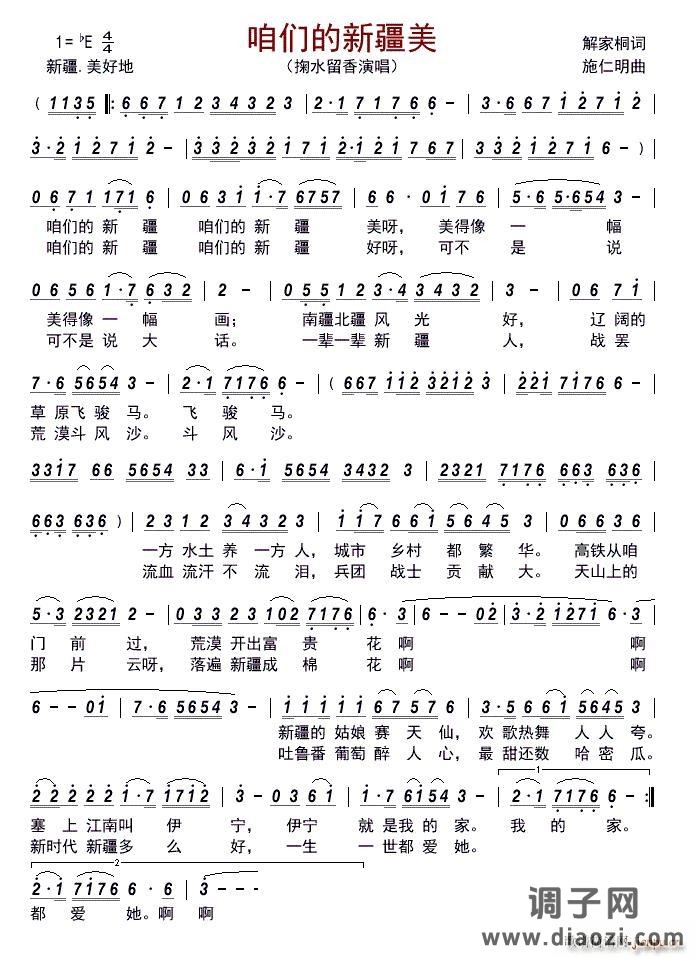 咱们的新疆美
1=♭E 4/4
解家桐词
新疆.美好地
（掬水留香演唱）
施仁明曲
( 1135 ‖: 6 6 7 1 2 3 4 3 2 3 | 2·1 7 1 7 6 6 - | 3·6 6 7 1 2 7 1 2
3·2 1 2 7 1 2 - | 3 3 2 1 2 3 2 1 7 1 2·1 2 1 7 6 7 | 3 3 2 1 2 7 1 6 - )
0 6 7 1 1 7 1 6 | 0 6 3 1 1·7 6 7 5 7 | 6 6·0 1 7 6 | 5·6 5·6 5 4 3 -
咱们的 新 疆 咱们的 新 疆 美呀， 美得像 一 幅
咱们的 新 疆 咱们的 新 疆 好呀， 可不 是 说
0 6 5 6 1·7 6 3 2 | 2 - 2 - | 0 5 5 1 2 3 4 3 4 3 2 | 3 - 0 6 7 1
美得像 一 幅 画； 南疆北疆 风 光 好， 辽 阔的
可不是 说 大 话。 一辈一辈 新 疆 人， 战 罢
7·6 5 6 5 4 3 - | 2·1 7 1 7 6 6 - | ( 6 6 7 1 1 2 3 2 1 2 3 | 2 2 1 7 1 7 6 6 -
草 原 飞 骏 马。 飞 骏 马。
荒 漠 斗 风 沙。 斗 风 沙。
3 3 1 7 6 6 5 6 5 4 3 3 | 6·1 5 6 5 4 3 4 5 3 | 2 3 2 1 7 1 7 6 6 6 3 6 3 6
6 6 3 6 3 6 ) | 2 3 1 2 3 4 3 2 | 1 1 7 6 6 1 5 6 4 5 3 | 0 6 6 3 6
一方 水土 养 一方 人， 城市 乡村 都 繁 华。 高铁从咱
流血 流汗 不 流 泪， 兵团 战士 贡 献 大。 天山上的
5·3 2 3 2 1 2 - | 0 3 3 2 3 1 0 2 7 1 7 6 | 6·3 - - | 6 - - 0 2 | 3·2 1 2 7 1 6 -
门 前 过， 荒漠 开出富 贵 花 啊 啊
那 片 云呀， 落遍 新疆成 棉 花 啊 啊
6 - - 0 1 | 7·6 5 6 5 4 3 - | 1 1 1 1 1 6 7 5 7 6 | 3·5 6 6 1 5 6 3 -
新疆的 姑娘 赛 天 仙， 欢 歌热舞 人 人 夸。
吐鲁番 葡萄 醉 人 心， 最 甜还数 哈 密 瓜。
2 2 2 2 2 1·7 1 7 1 2 | 3 - 0 3 6 1 | 1·7 6 1 5 4 3 - | 2·1 7 1 7 6 6 - :‖
塞 上 江南叫 伊 宁， 伊宁 就 是我 的 家。 我 的 家。
新时代 新疆多 么 好， 一生 一 世都 爱 她。
2·1 7 1 7 6 6·6 | 3 - - - ‖
都 爱 她。啊 啊
调子网
www.diaozi.com